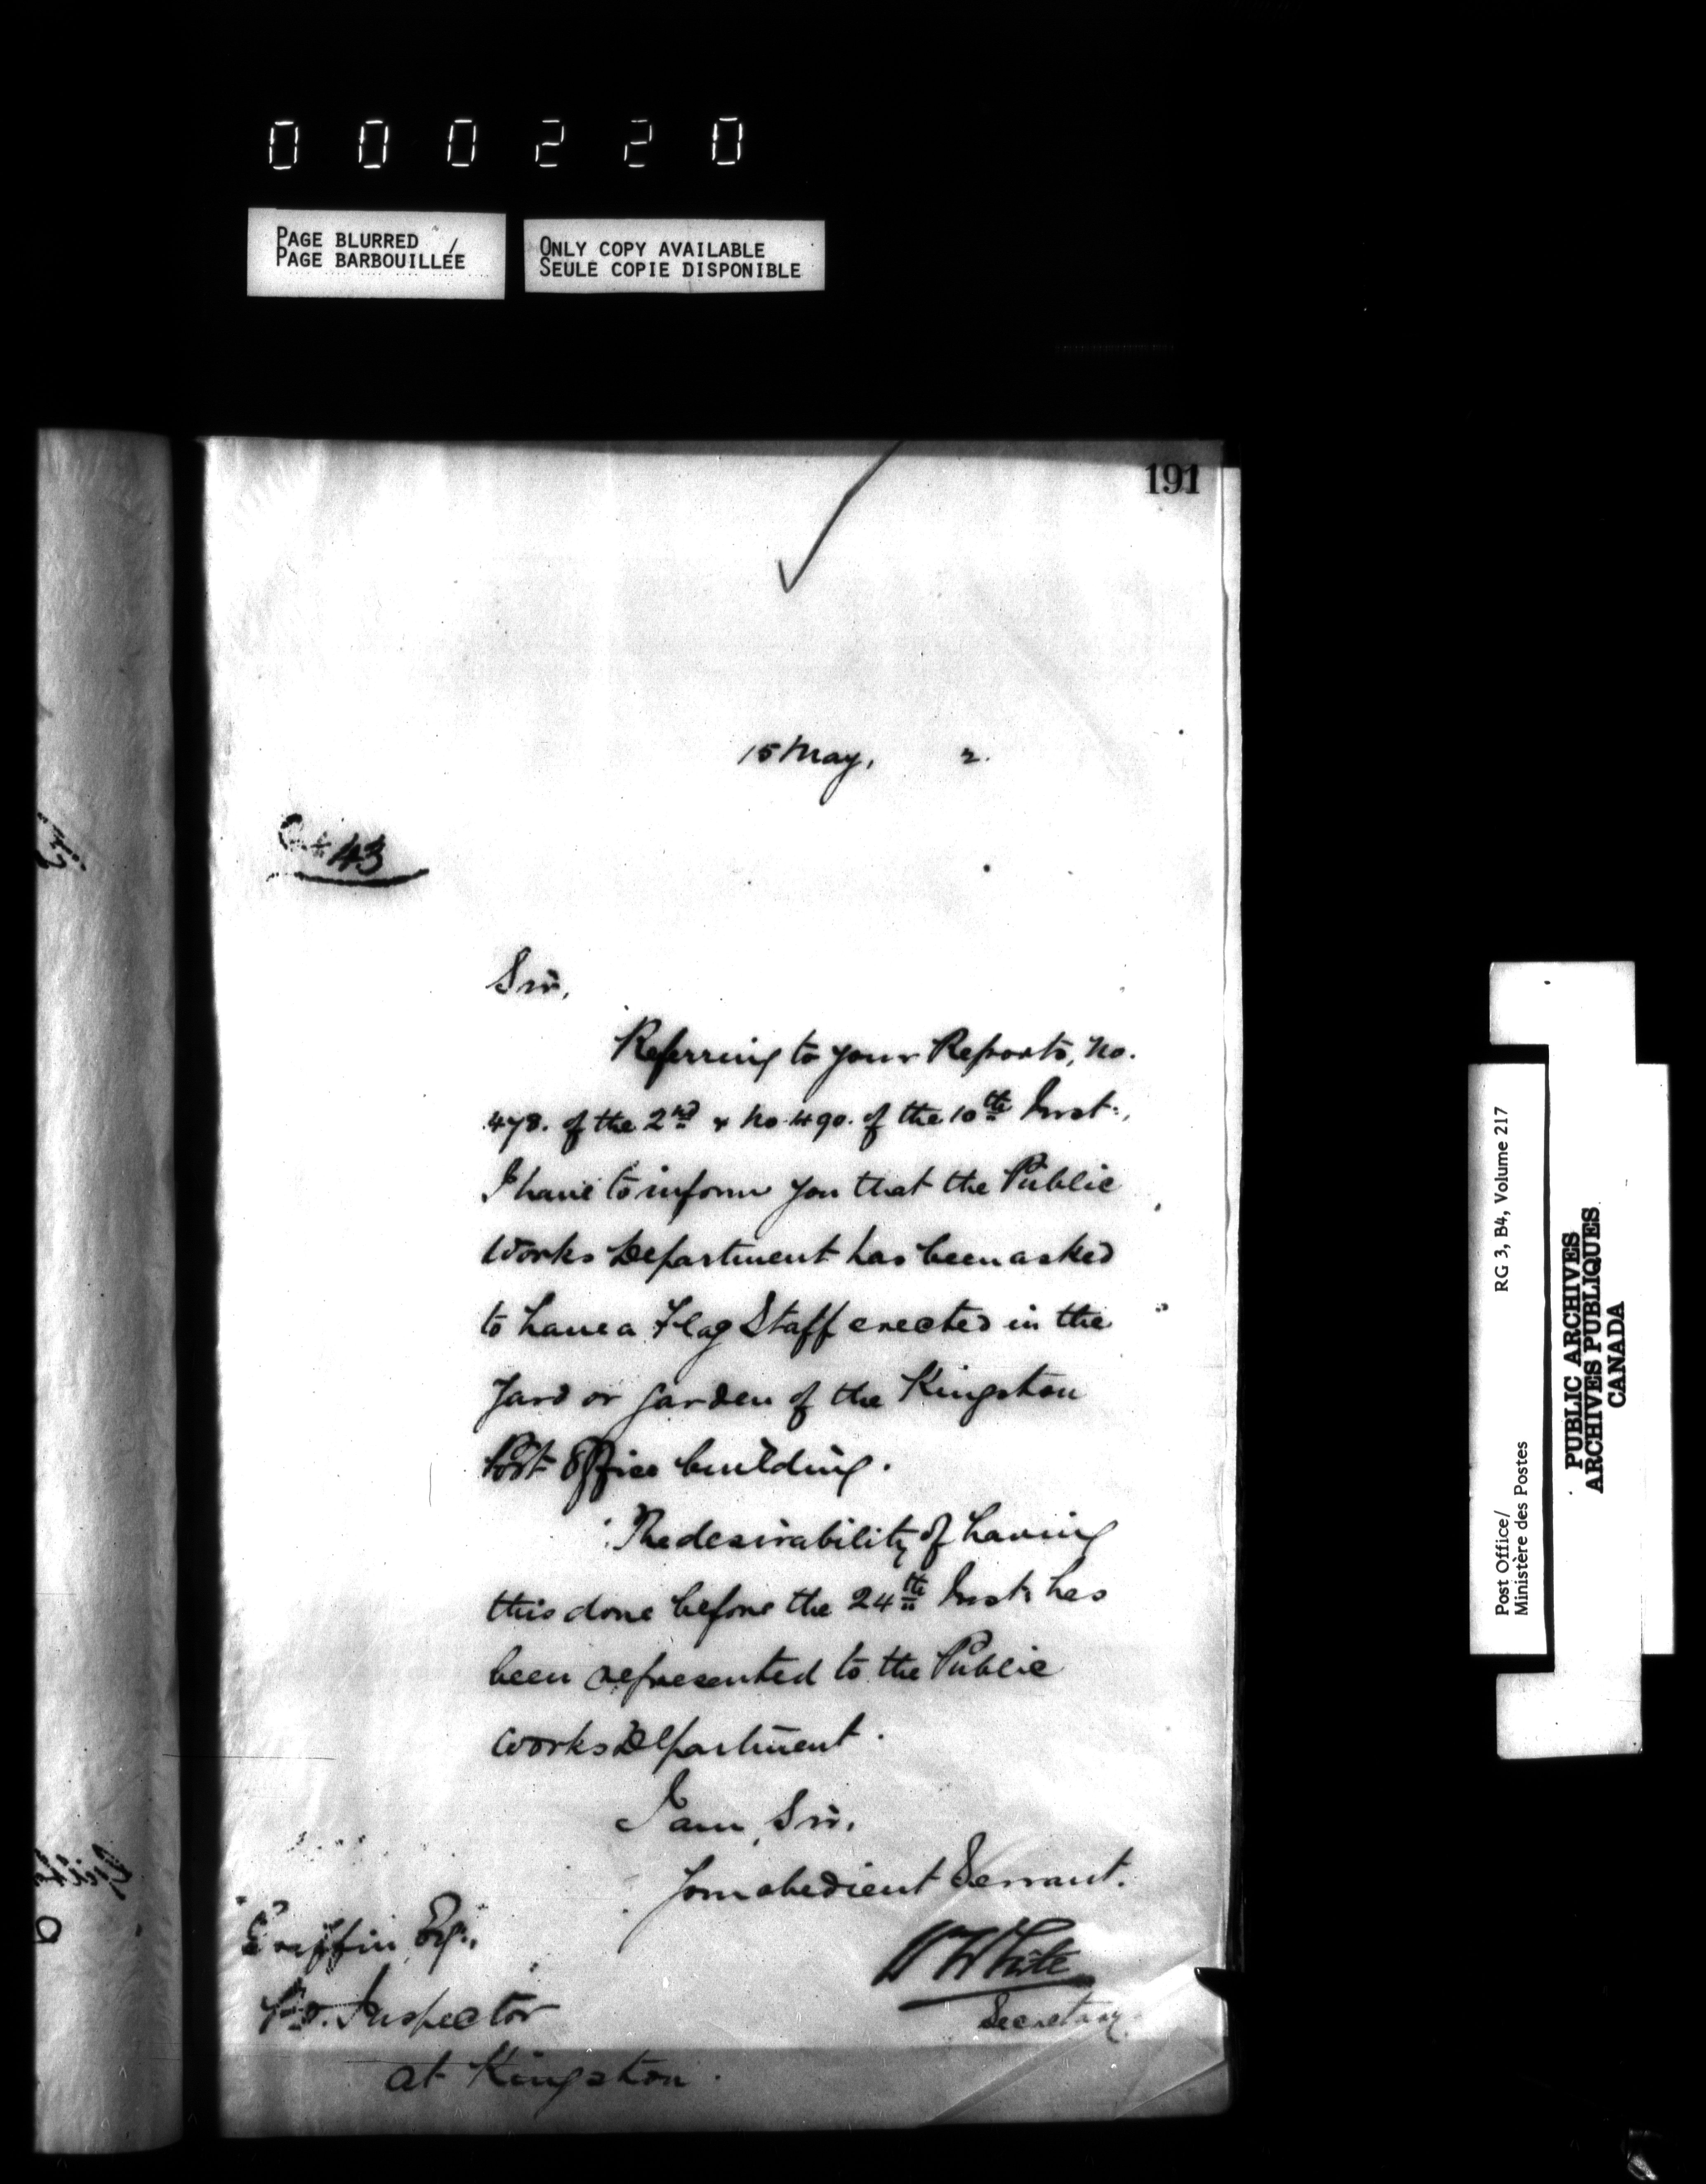 000220
PAGE BLURRED
PAGE BARBOUILLÉE
ONLY COPY AVAILABLE
SEULE COPIE DISPONIBLE
191
15 May, 2.
43
Sir,
Referring to your Reports, No.
478. of the 2nd & No. 490. of the 10th Inst.,
I have to inform you that the Public
Works Department has been asked
to have a Flag Staff erected in the
Yard or Garden of the Kingston
Post Office building.
The desirability of having
this done before the 24th Inst. has
been represented to the Public
Works Department.
I am, Sir,
Your obedient Servant.
W White
Secretary.
Griffin Esq.,
P.O. Inspector
at Kingston.
Post Office/
Ministère des Postes
RG 3, B4, Volume 217
PUBLIC ARCHIVES
ARCHIVES PUBLIQUES
CANADA